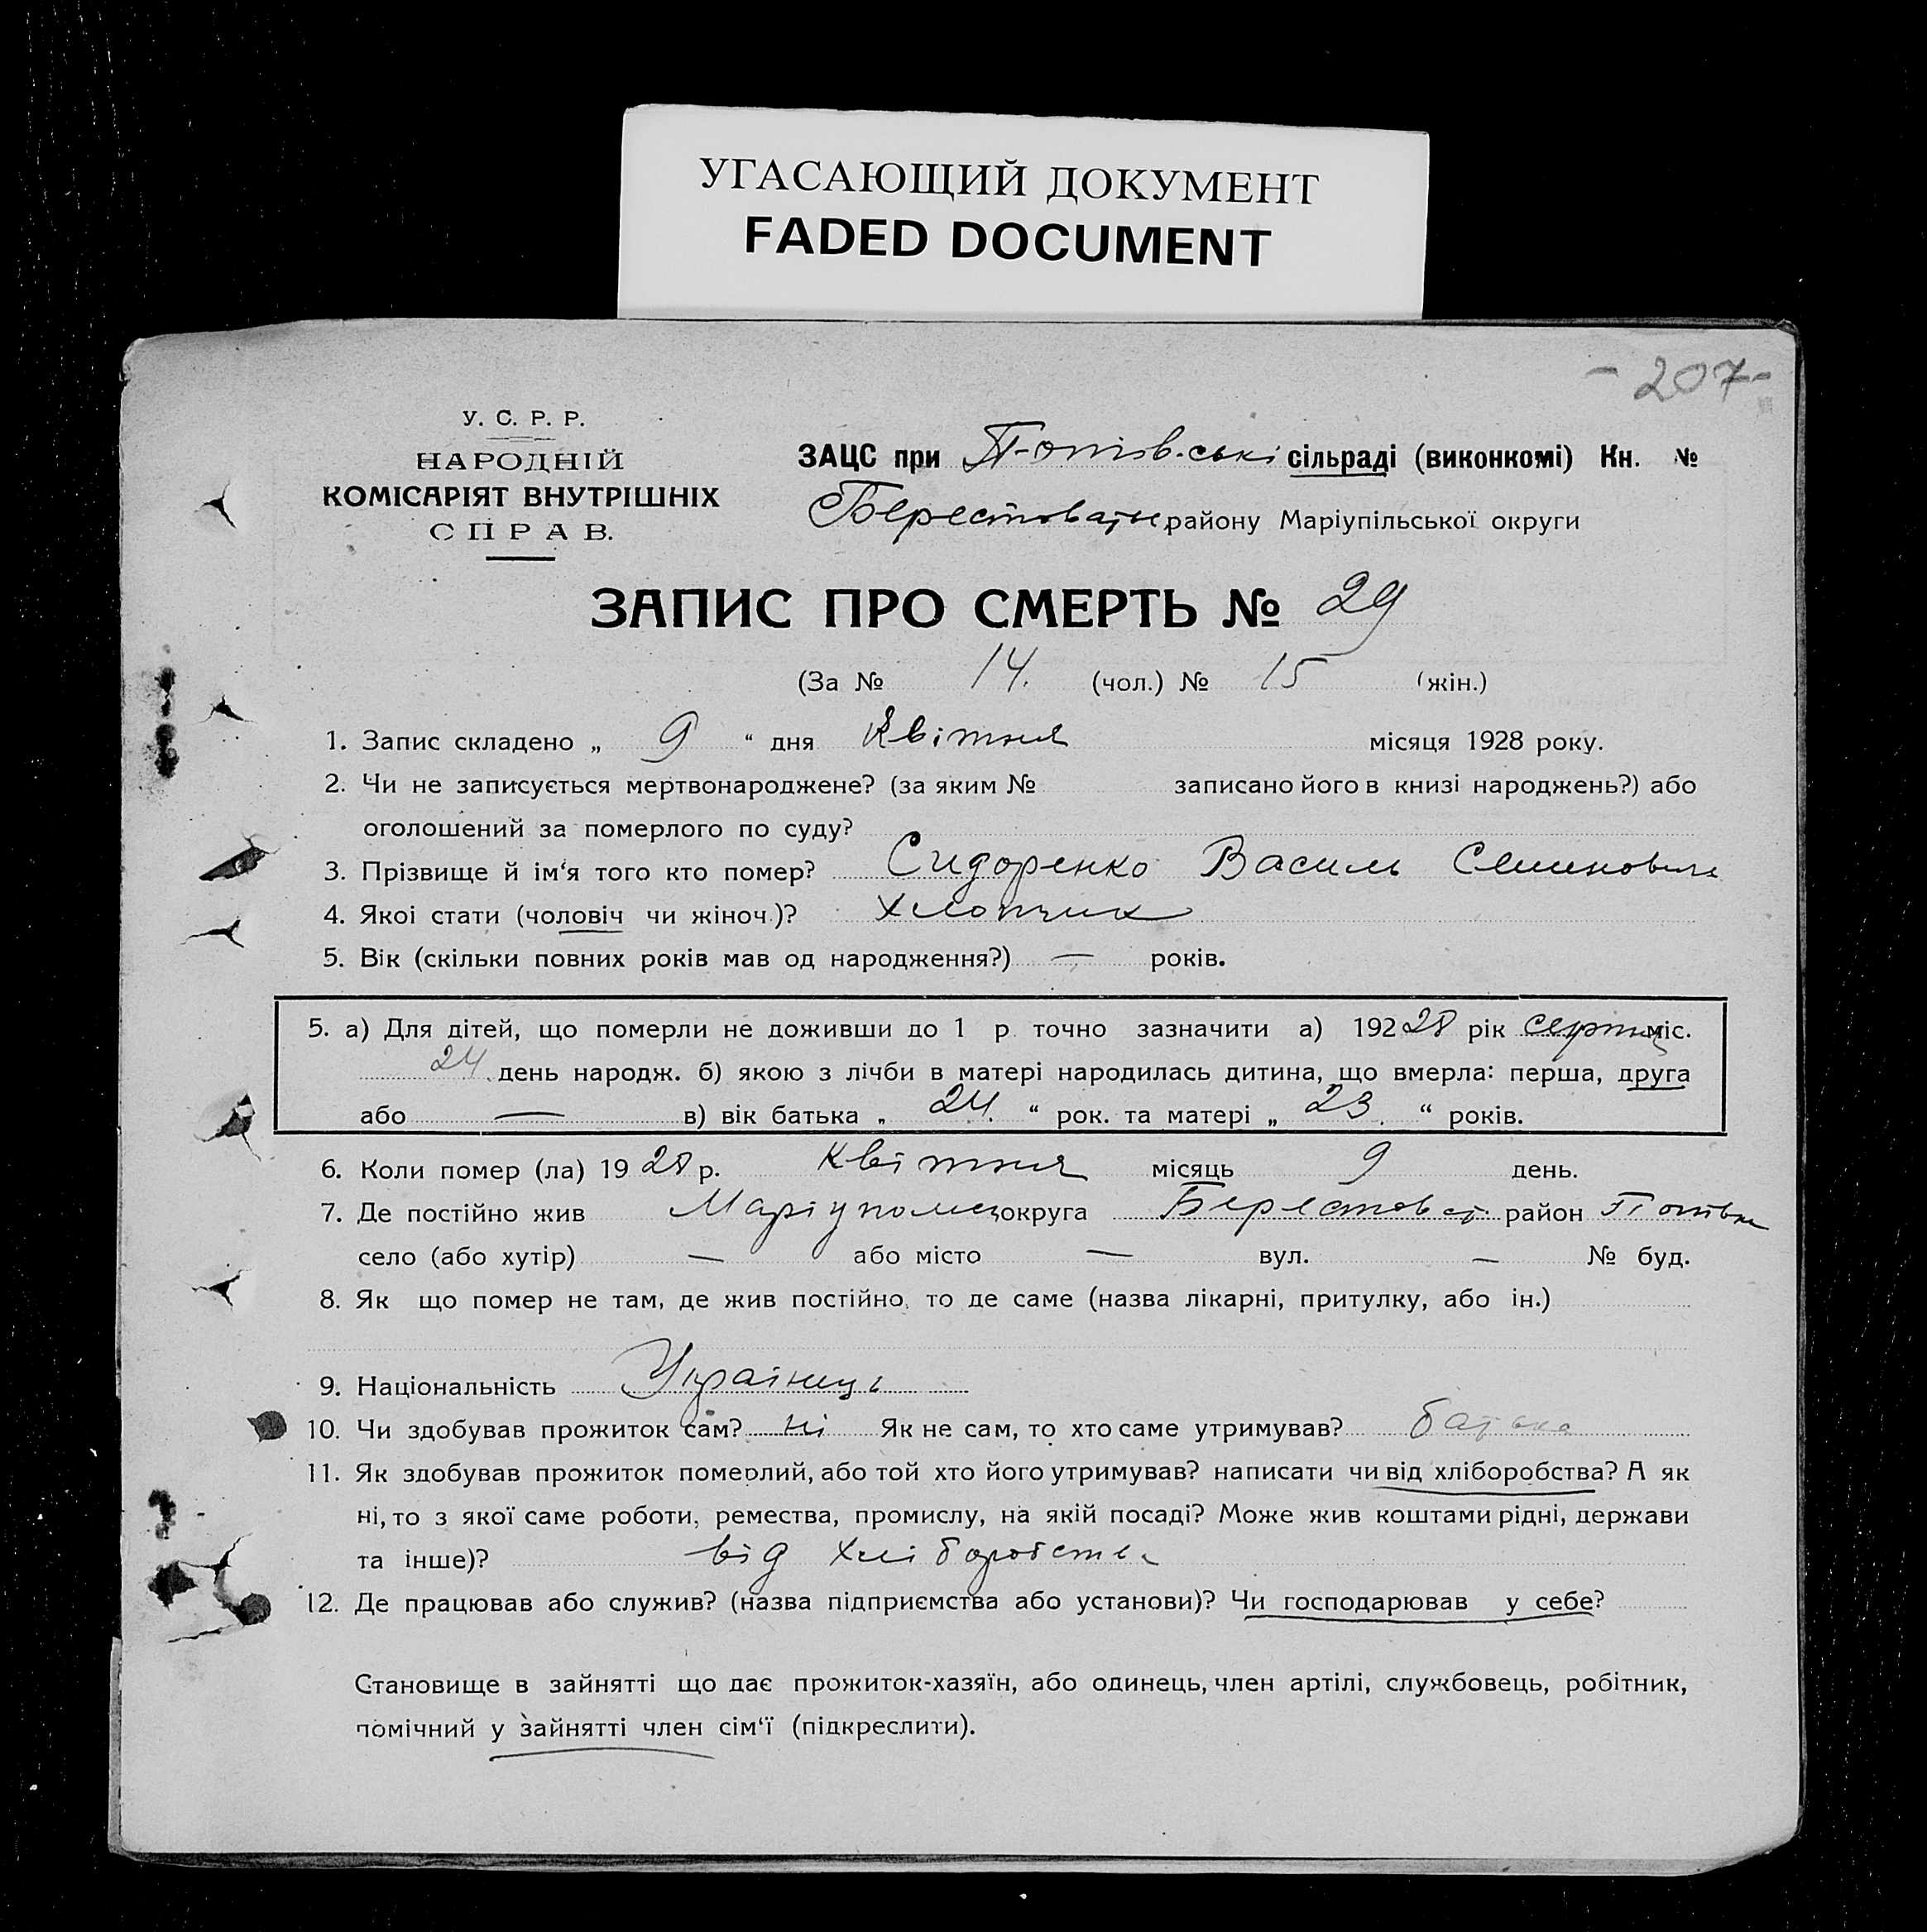 УГАСАЮЩИЙ ДОКУМЕНТ
FADED DOCUMENT
- 207 -
У. С. Р. Р.
НАРОДНІЙ
КОМІСАРІЯТ ВНУТРІШНІХ
СПРАВ.
ЗАЦС при сільраді (виконкомі) Кн. №
району Маріупільської округи
ЗАПИС ПРО СМЕРТЬ № 29
(За № 14. (чол.) № 15 (жін.)
1. Запис складено „ 9 “ дня Квітня місяця 1928 року.
2. Чи не записується мертвонароджене? (за яким № записано його в книзі народжень?) або
оголошений за померлого по суду?
3. Прізвище й ім‘я того кто помер? Сидоренко Василь Семенович
4. Якоі стати (чоловіч чи жіноч.)? Хлопчик
5. Вік (скільки повних років мав од народження?) — років.
5. а) Для дітей, що померли не доживши до 1 р. точно зазначити а) 192 28 рік міс.
24 день народж. б) якою з лічби в матері народилась дитина, що вмерла: перша, друга
або — в) вік батька „ 24. “ рок. та матері „ 23. “ років.
6. Коли помер (ла) 19 28 р. Квітня місяць 9 день.
7. Де постійно жив округа район
село (або хутір) — або місто — вул. — № буд.
8. Як що помер не там, де жив постійно, то де саме (назва лікарні, притулку, або ін.)
9. Національність Українець
10. Чи здобував прожиток сам? ні Як не сам, то хто саме утримував? батько
11. Як здобував прожиток померлий, або той хто його утримував? написати чи від хліборобства? А як
ні, то з якої саме роботи, ремества, промислу, на якій посаді? Може жив коштами рідні, держави
та інше)? від хліборобства
12. Де працював або служив? (назва підприємства або установи)? Чи господарював у себе?
Становище в зайнятті що дає прожиток-хазяїн, або одинець, член артілі, службовець, робітник,
помічний у зайнятті член сім‘ї (підкреслити).